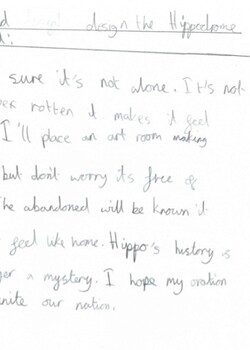 d design the Hippodrome
d:
sure it's not alone. It's not
er rotten it makes it feel
I'll place an art room making
but don't worry its free of
he abandoned will be known it
feel like home. Hippo's history is
ger a mystery. I hope my ovation
nite our nation.